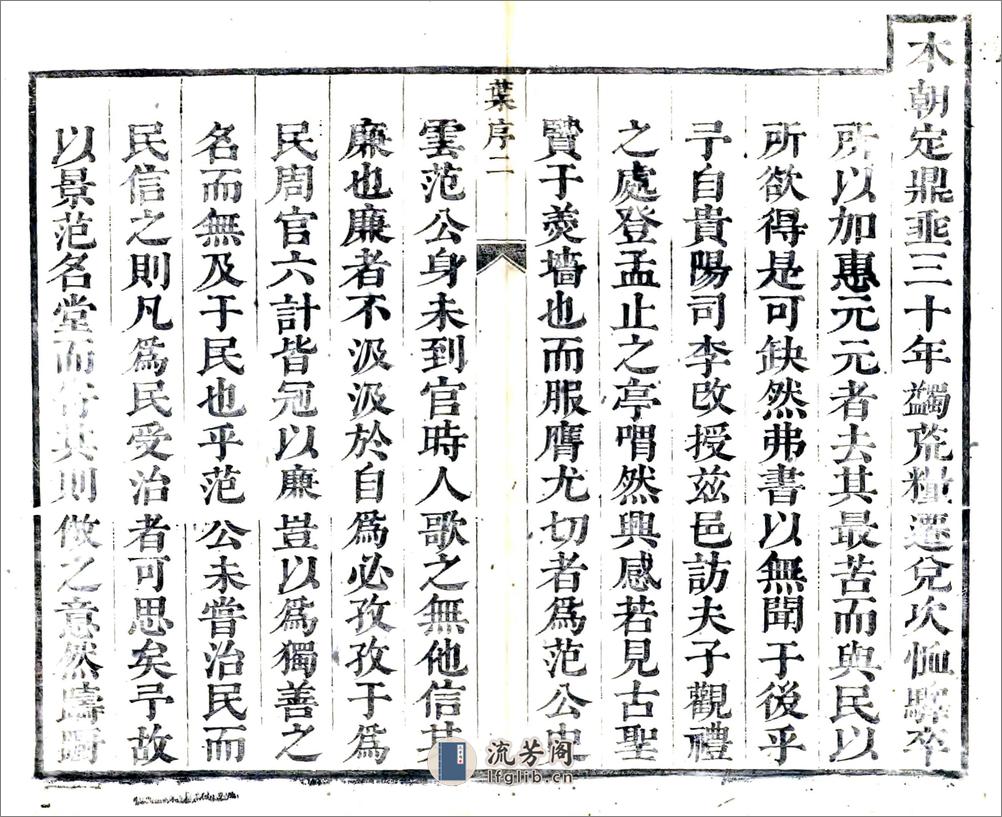 本朝定鼎垂三十年蠲荒糧遷兌次恤驛卒
所以加惠元元者去其最苦而與民以
所欲得是可缺然弗書以無聞于後乎
予自貴陽司李改授茲邑訪夫子觀禮
之處登孟止之亭喟然興感若見古聖
賢于羮墻也而服膺尤切者為范公史
葉序二
雲范公身未到官時人歌之無他信其
廉也廉者不汲汲於自為必孜孜于為
民周官六計皆冠以廉豈以為獨善之
名而無及于民也乎范公未嘗治民而
民信之則凡為民受治者可思矣予故
以景范名堂而客其則倣之意然疇
流芳阁
lfglib.cn